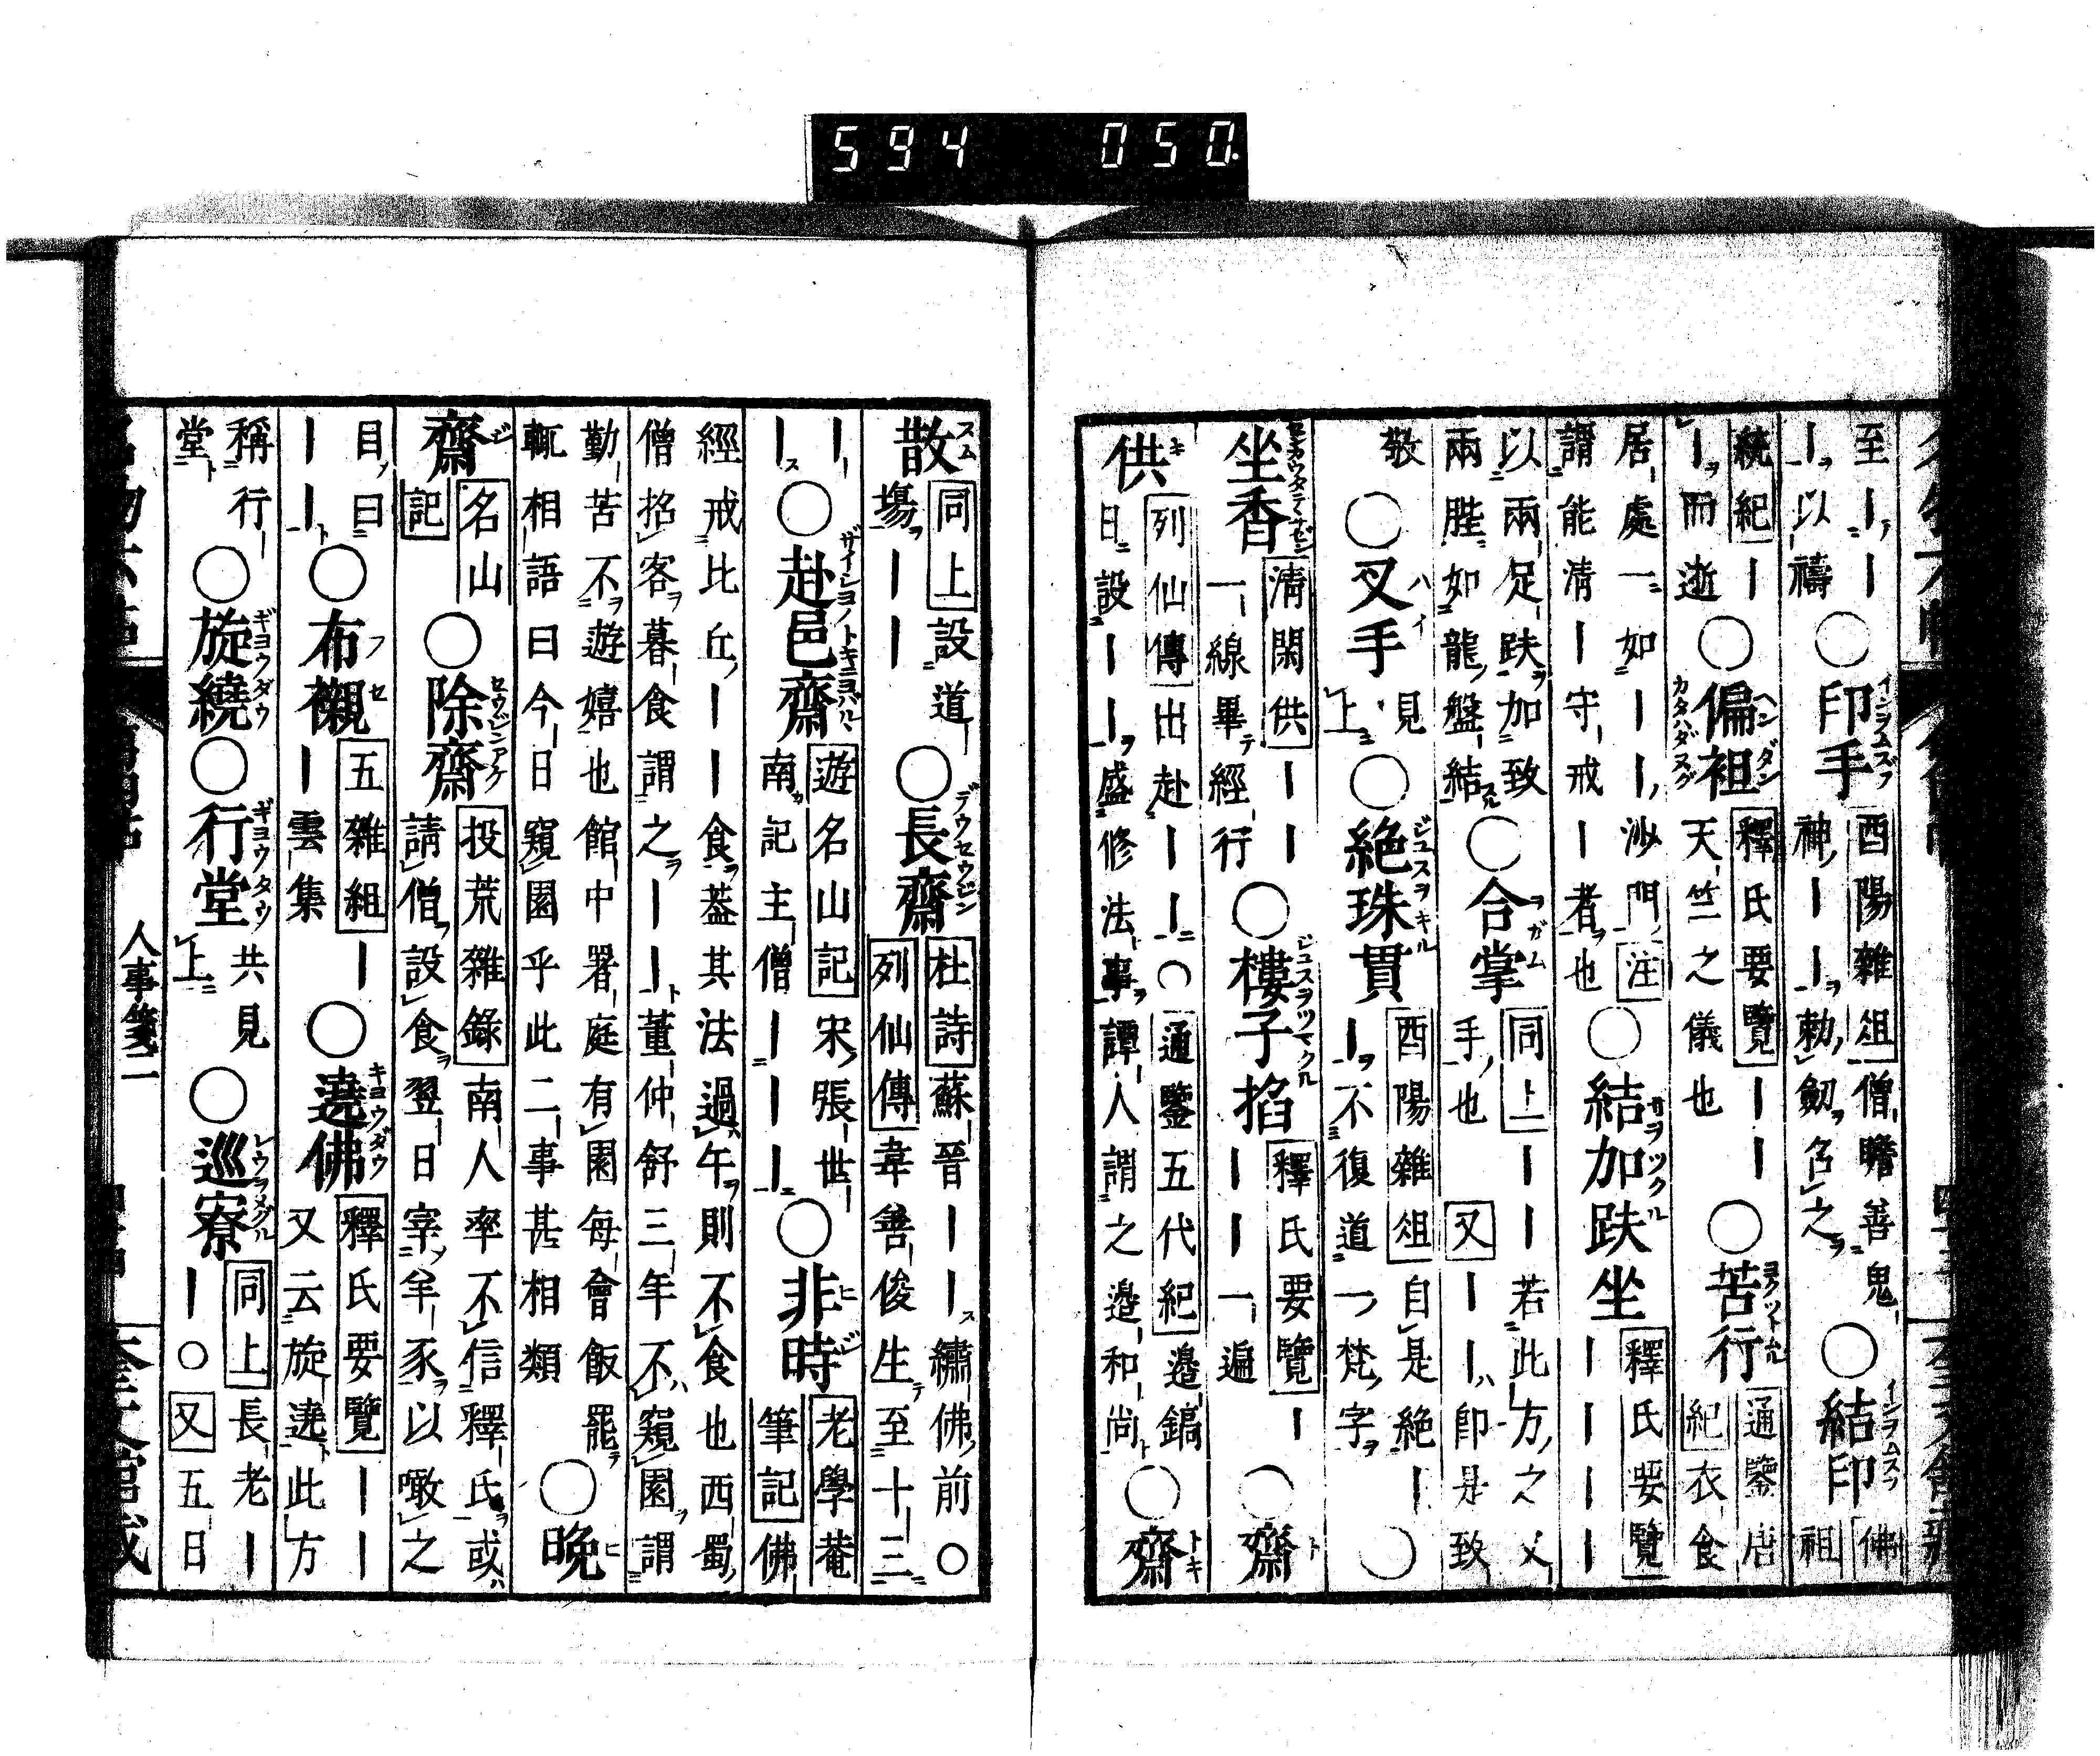 594 050.
至——
—以禱
○印手
酉陽雜俎僧瞻善鬼
神——勅劔召之
○結印
佛
祖
統紀—
—而逝
○偏袒
釋氏要覽——
天竺之儀也
○苦行
通鑒唐
紀衣食
居處一如——沙門注
謂能清—守戒—者也
○結加趺坐
釋氏要覽
————
以兩足趺加致
兩䏶如龍盤結
○合掌
同上——若此方之义
手也又———即是致
敬
○叉手
見
上
○絶珠貫
酉陽雜俎自是絶—
—不復道一梵字
○
坐香
清閑供——
一線畢經行
○樓子掐
釋氏要覽—
——一遍
○齋
供
列仙傳出赴——○通鑒五代紀邉鎬
日設———盛修法事譚人謂之邉和尚
○齋
散
同上設道
塲——
○長齋
杜詩蘇晉——繡佛前○
列仙傳韋善俊生至十三
—
—
○赴邑齋
遊名山記宋張世
南記主僧———
○非時
老學菴
筆記佛
經戒比丘——食葢其法過午則不食也西蜀
僧招客暮食謂之——董仲舒三年不窺園謂
勤苦不遊嬉也館中署庭有園每會飯罷
輒相語曰今日窺園乎此二事甚相類
○晩
齋
名山
記
○除齋
投荒雜錄南人率不信釋氏或
請僧設食翌日宰羊豕以噉之
目曰
——
○布襯
五雜組—
—雲集
○遶佛
釋氏要覽——
又云旋遶此方
稱行
堂
○旋繞○行堂
共見
上
○巡寮
同上長老—
—○又五日
人事箋二